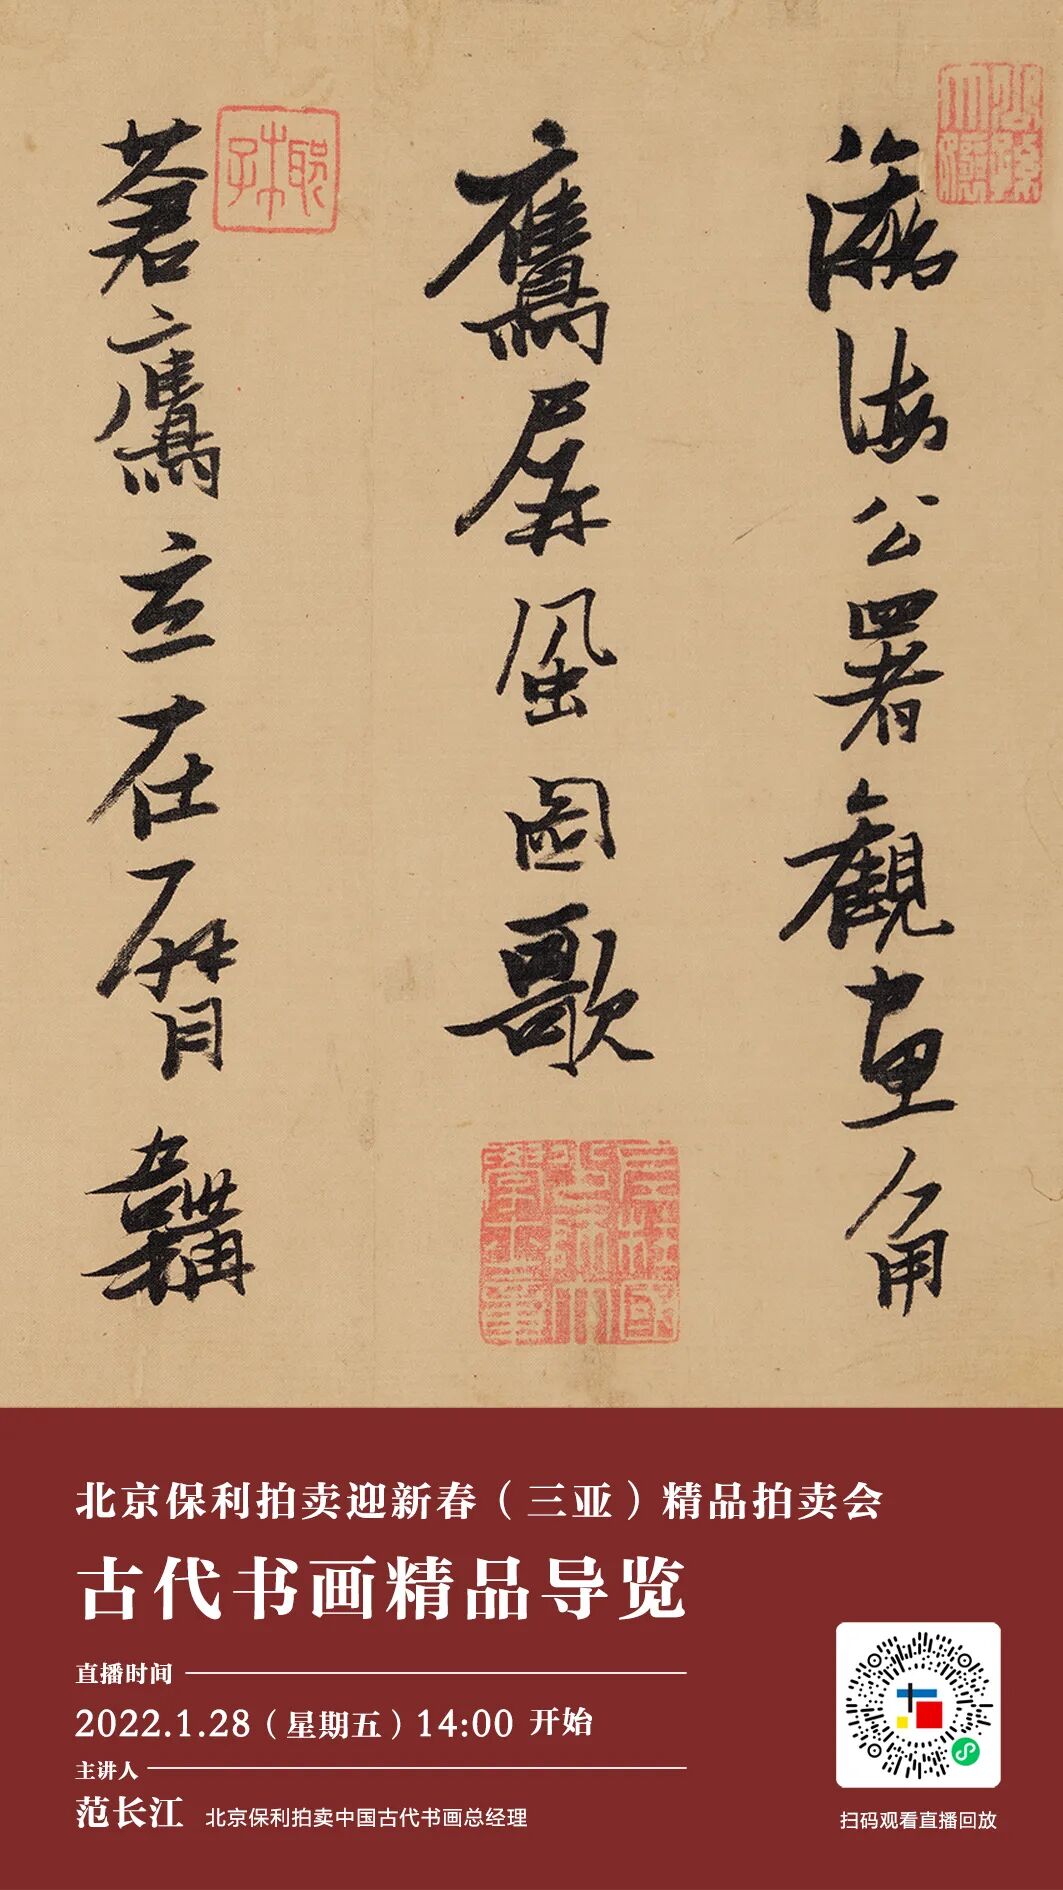 瀛海公署觀畫角
鷹屏風圖歌
蒼鷹立在臂韝
北京保利拍卖迎新春（三亚）精品拍卖会
古代书画精品导览
直播时间
2022.1.28（星期五）14:00 开始
主讲人
范长江 北京保利拍卖中国古代书画总经理
扫码观看直播回放